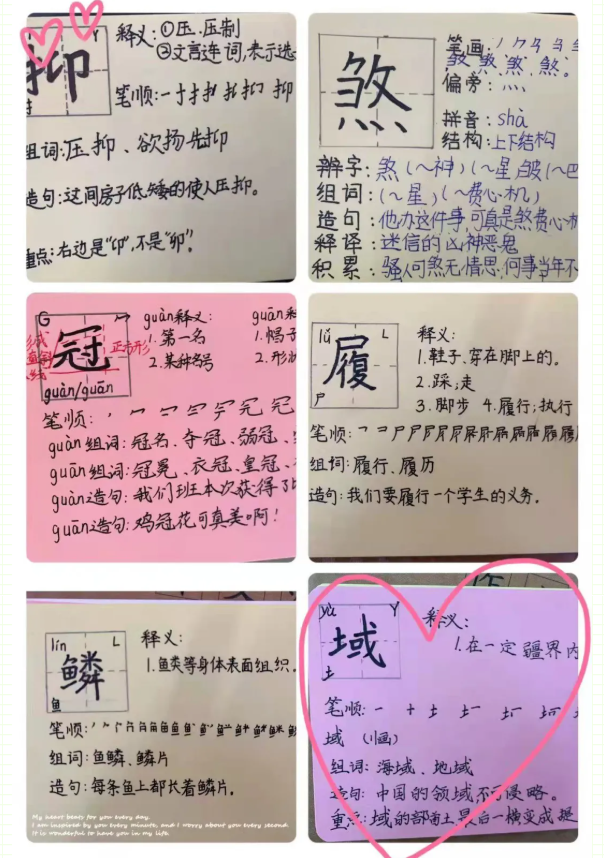 抑
扌
释义:①压、压制
②文言连词,表示选
笔顺:一十扌扌扌扣抑
组词:压抑、欲扬先抑
造句:这间房子低矮的使人压抑。
重点:右边是“卬”,不是“卯”。
煞
笔画:
煞煞煞煞。
偏旁:灬
拼音:shà
结构:上下结构
辨字:煞(~神)(~星)皴(~巴
组词:(~星)(~费心机)
造句:他办这件事,可真是煞费心机
释译:迷信的凶神恶鬼
积累:骚人可煞无情思,何事当年不
G
冖
冠
guàn/guān
正方形
guàn释义:
1.第一名
2.某种名号
guān释
1.帽子
2.形
笔顺:
guàn组词:冠名、夺冠、弱冠、
guān组词:冠冕、衣冠、皇冠、
guàn造句:我们班本次获得了
guān造句:鸡冠花可真美啊!
lǚ L
履
尸
释义:
1.鞋子、穿在脚上的。
2.踩;走
3.脚步 4.履行;执行
笔顺:
组词:履行、履历
造句:我们要履行一个学生的义务。
lín L
鳞
鱼
释义:
1.鱼类等身体表面组织.
笔顺:
组词:鱼鳞、鳞片
造句:每条鱼上都长着鳞片。
My heart beats for you every day.
I am inspired by you every minute, and I worry about you every second.
It is wonderful to have you in my life.
yù Y
域
土
释义:
1.在一定疆界内
笔顺:一 十 土
域 (11画)
组词:海域、地域
造句:中国的领域不可侵略。
重点:域的部首土最后一横变成提